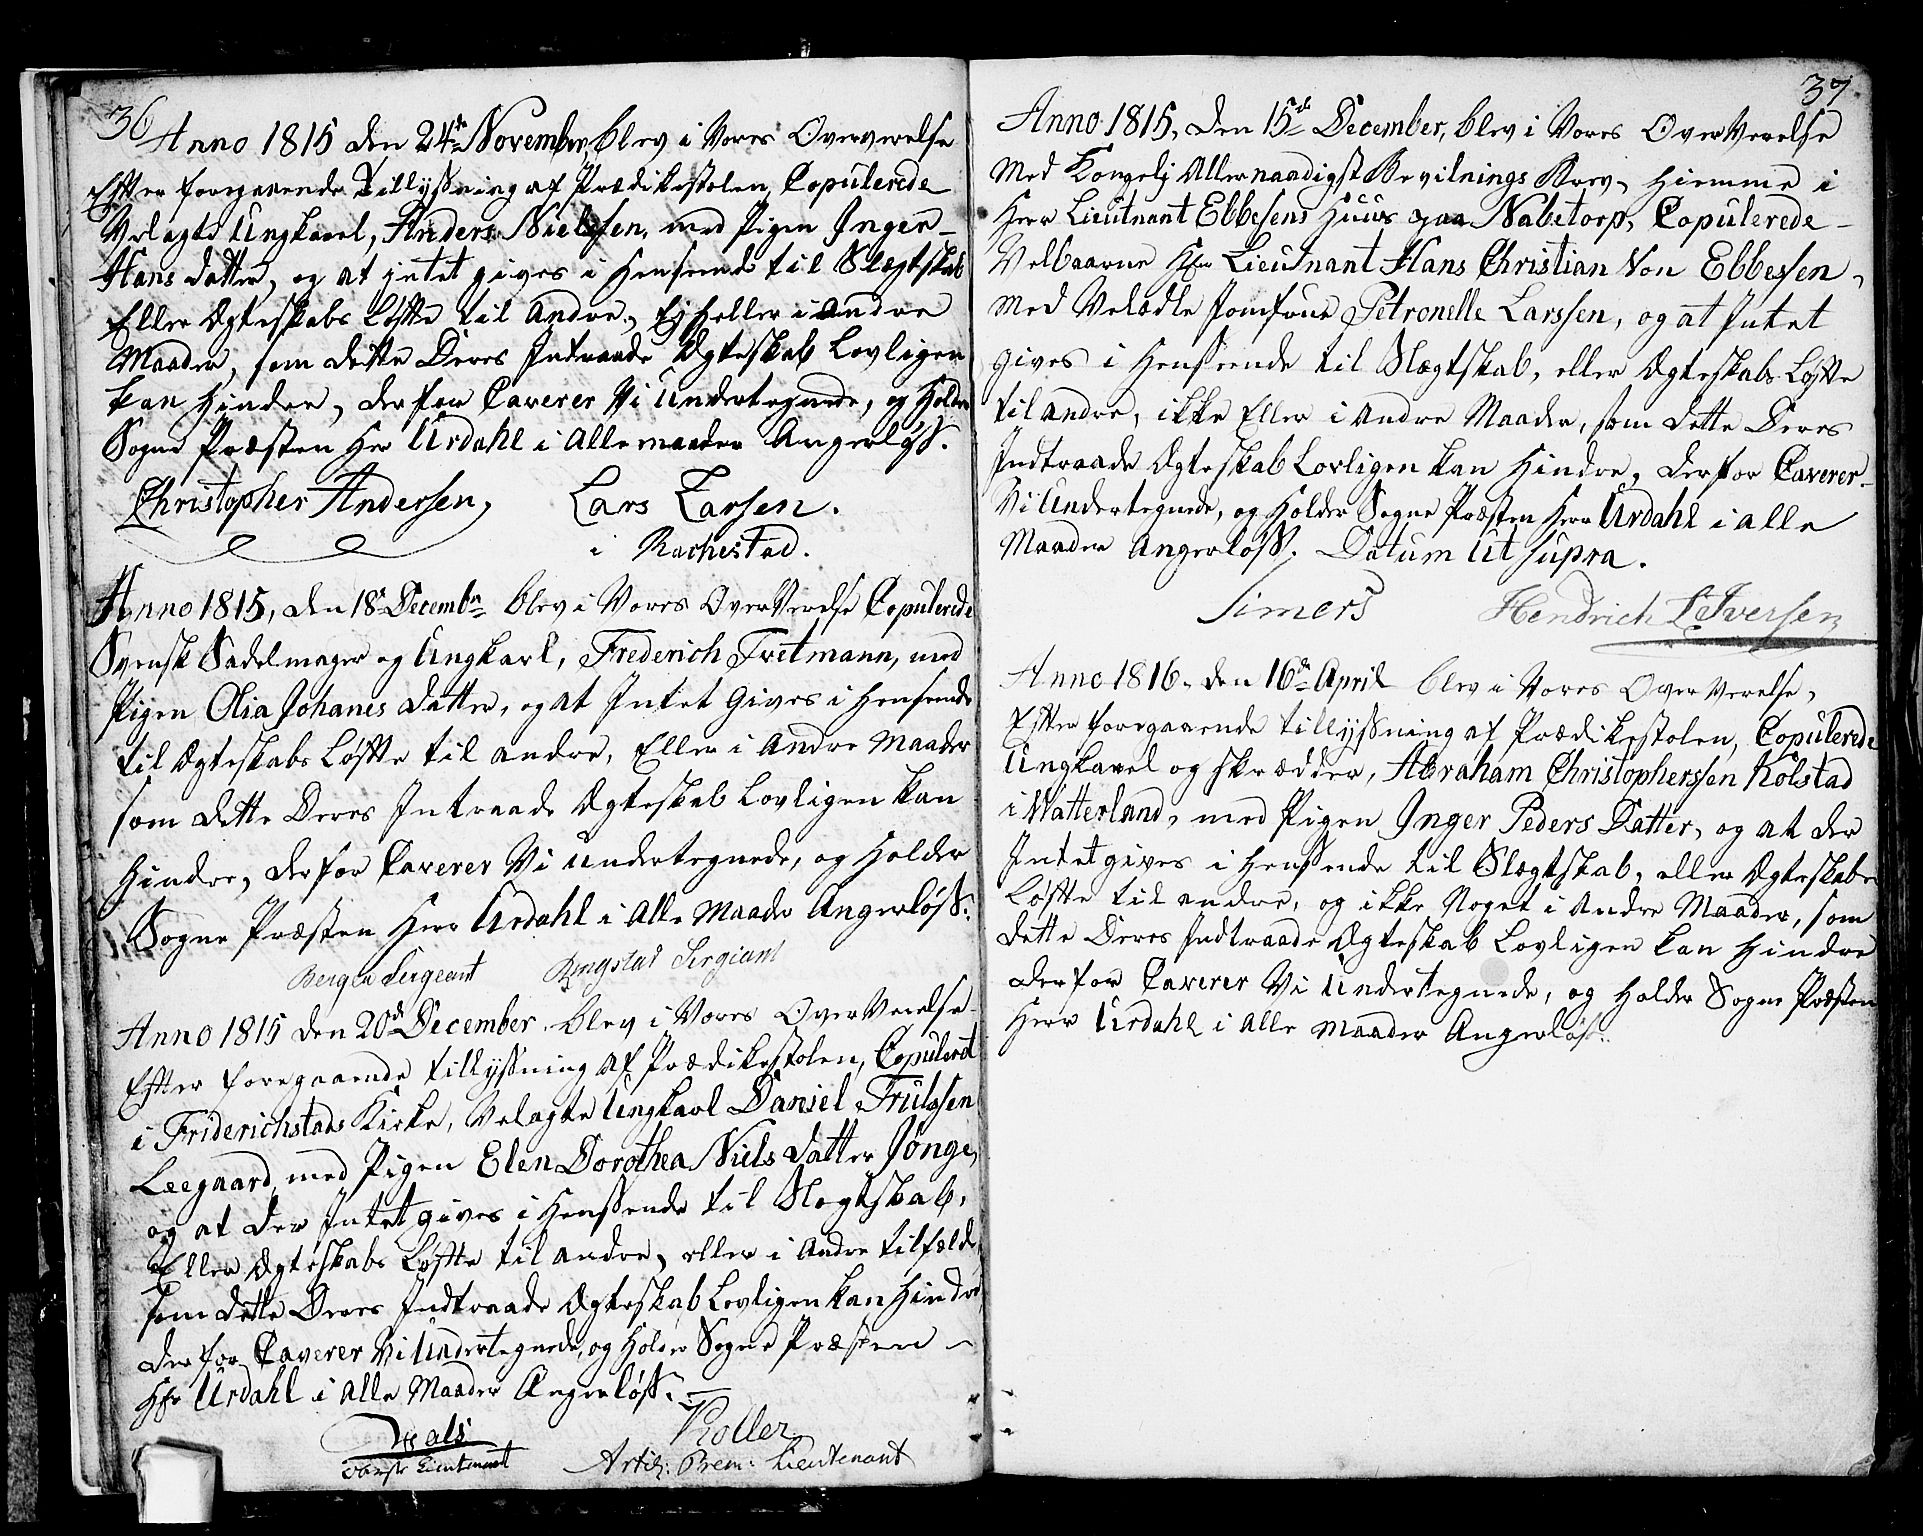 36
Anno 1815 den 24de November, blev i Vores Oververelse
Efter foregaaende Tillysning af Prædikestolen, Copulerede
Velagte Ungkarl, Anders Nielsen, med Pigen Inger
Hans datter, og at intet gives i Henseende til Slægtskab
Eller Ægteskabs Løfte til Andre, Ej heller i Andre
Maader, som dette Deres Intraade Ægteskab Lovligen
kan Hindre, derfor Caverer Vi Undertegnede, og Holder
Sogne Præsten Her Urdahl i Alle maader Angerløss.
Christopher Andersen, Lars Larsen.
i Rachestad.
Anno 1815, den 18de Decembr blev i Vores OverVerelse Copulerede
Svensk Sadelmager og Ungkarl, Frederich Fretmann, med
Pigen Olia Johanes datter, og at Intet Gives i Henseende
til Ægteskabs Løfte til andre, Eller i Andre Maader
som dette Deres Intraade Ægteskab Lovligen kan
Hindre, derfor Caverer Vi undertegnede, og Holder
Sogne Præsten Herr Urdahl i Alle Maader Angerløss.
Bergen Sergeant Ringstad Sergiant
Anno 1815 den 20de December blev i Vores OverVerelse
Efter foregaaende tillyssning af Prædikestolen, Copuleret
i Friderichstads Kirke, Velagte Ungkarl Daniel Trulssen
Leegaard, med Pigen Elen Dorothea Niels datter Jonge,
og at der Intet gives i Henssende til Slægtskab,
Eller Ægteskabs Løfte til andre, eller i Andre tilfælde,
som dette Deres Indtraade Ægteskab Lovligen kan Hindre,
derfor Caverer Vi Undertegnede, og Holder Sogne Præsten
Hr Urdahl i Alle Maader Angerløss.
Koller
Artil: Prem: Lieutenant
37
Anno 1815, den 15de December, blev i Vores OverVerelse
Med Kongelj Allernaadigst Bevilnings Brev, Hiemme i
Herr Lieutnant Ebbesens Huus paa Nabetorp, Copulerede
Velbaarne Hr Lieutnant Hans Christian Von Ebbesen,
Med Velædle Jomfrue Petronelle Larssen, og at Intet
gives i Henseende til Slægtskab, eller Ægteskabs Løfte
til andre, ikke Eller i Andre Maader, som dette Deres
Indtraade Ægteskab Lovligen kan Hindre, derfor Caverer
Vi Undertegnede, og Holder Sogne Præsten Herr Urdahl i alle
Maader Angerløss. Datum Ut supra.
Simers Hendrich L Iversen
Anno 1816. den 16de April blev i Vores OverVerelse,
Efter foregaaende tillyssning af Prædikestolen, Copulerede
Ungkarl og Skrædder, Abraham Christopherssen Kolstad
i Watterland, med Pigen Inger Peders Datter, og at der
Intet gives i Henssende til Slægtskab, eller Ægteskabs
Løfte til andre, og ikke Noget i Andre Maader, som
dette Deres Indtraade Ægteskab Lovligen kan Hindre
derfor Caverer Vi Undertegnede, og Holder Sogne Præsten
Herr Urdahl i Alle Maader Angerløs.